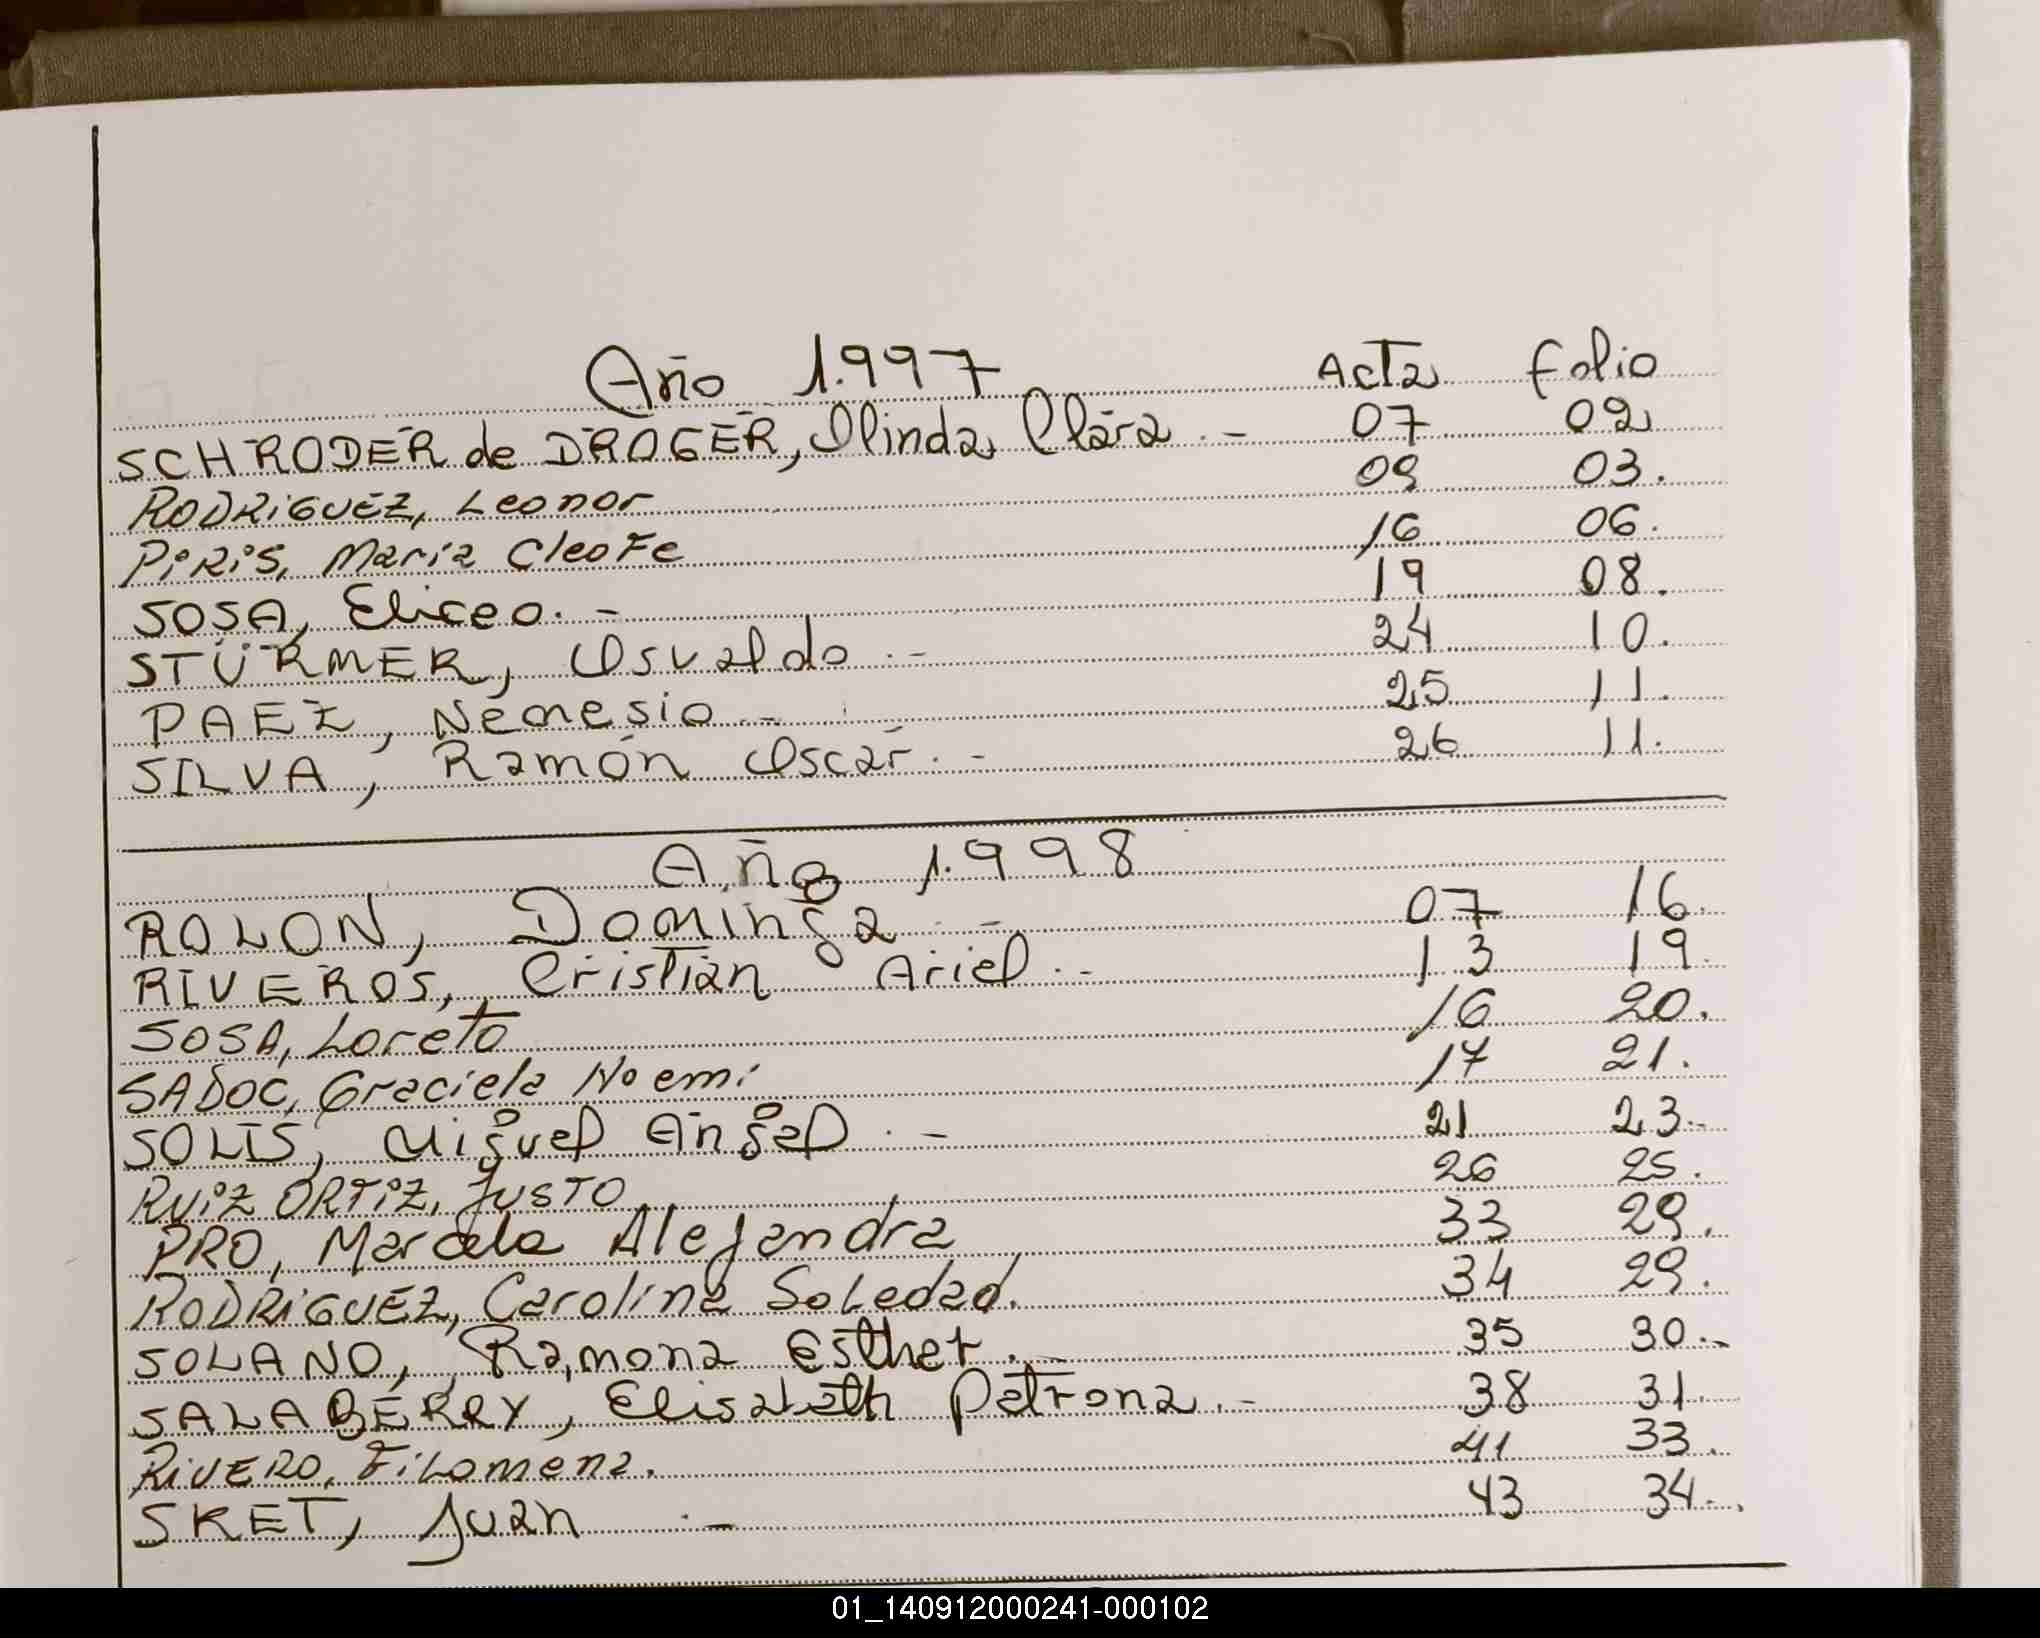 Año 1.997 Acta Folio
SCHRODER de DROGER, Olinda Clara .- 07 02
RODRIGUEZ, Leonor 09 03.
PIRIS, Maria Cleofe 16 06.
SOSA, Eliceo.- 19 08.
STÜRMER, Osvaldo .- 24 10.
PAEZ, Nemesio .- 25 11.
SILVA, Ramón Oscar .- 26 11.
Año 1.998
ROLON, Dominga .- 07 16.
RIVEROS, Cristian Ariel .- 13 19.
SOSA, Loreto 16 20.
SADOC, Graciela Noemi 17 21.
SOLIS, Miguel Angel .- 21 23.-
RUIZ ORTIZ, Justo 26 25.
PRO, Marcela Alejandra 33 29.
RODRIGUEZ, Carolina Soledad. 34 29.
SOLANO, Ramona Esther .- 35 30.-
SALABERRY, Elisabeth Petrona .- 38 31.
RIVERO, Filomena. 41 33.
SKET, Juan .- 43 34.-
01_140912000241-000102